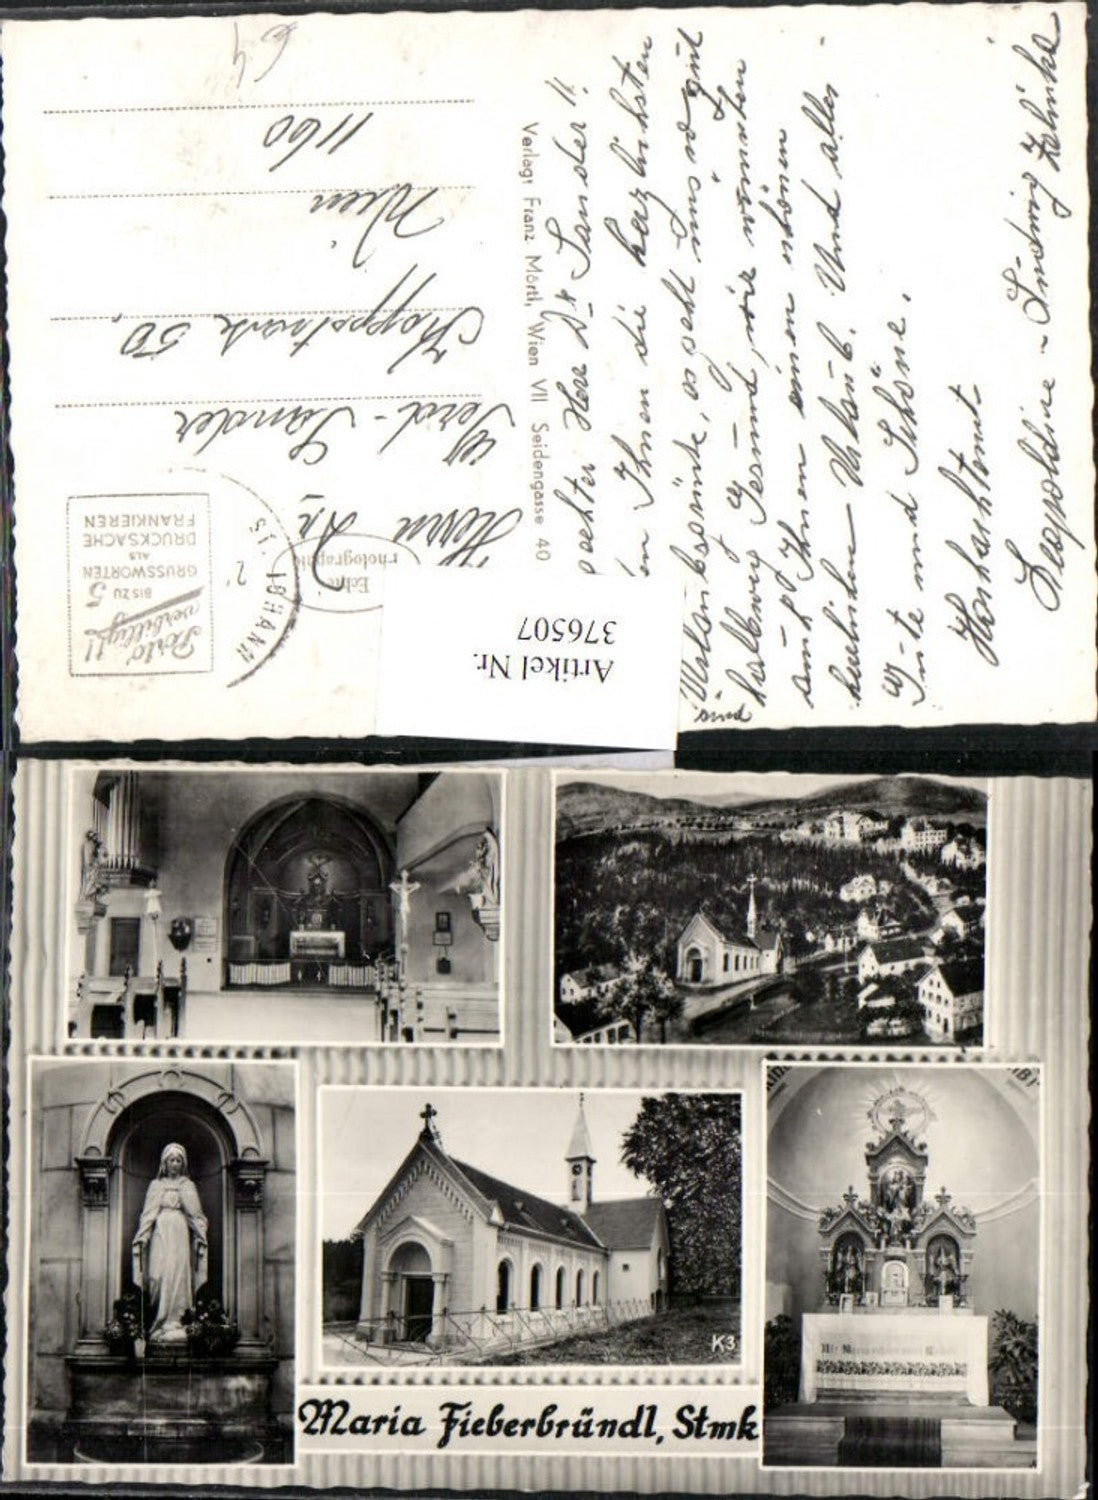 64
Herrn Dr.
Ferd. Sandler
Koppstrasse 50.
Wien
1160
Porto
verbilligt!!
BIS ZU 5
GRUSSWORTEN
ALS
DRUCKSACHE
FRANKIEREN
ST. JOHANN
Echte
Photographie
Verlag: Franz Mörtl, Wien VII Seidengasse 40
Artikel Nr.
376507
Herr Dr Sandler!!
Ihnen die herzlichsten
Urlaubsgrüsse, es geht uns so gut
sind
halbweg Gesund, wir wünschen
auch Ihnen einen schönen
herrlichen Urlaub. Und alles
Gute und Schöne.
Hochachtent
Leopoldine
Maria Fieberbründl, Stmk
K3